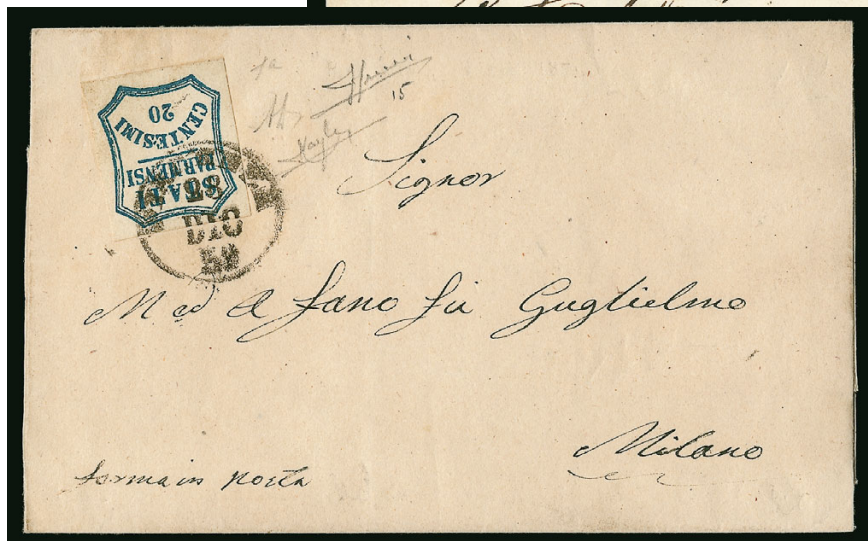 STATI
PARMENSI
CENTESIMI
20
DIC
59
15
Signor
M ed A Fano fu Guglielmo
Milano
ferma in posta